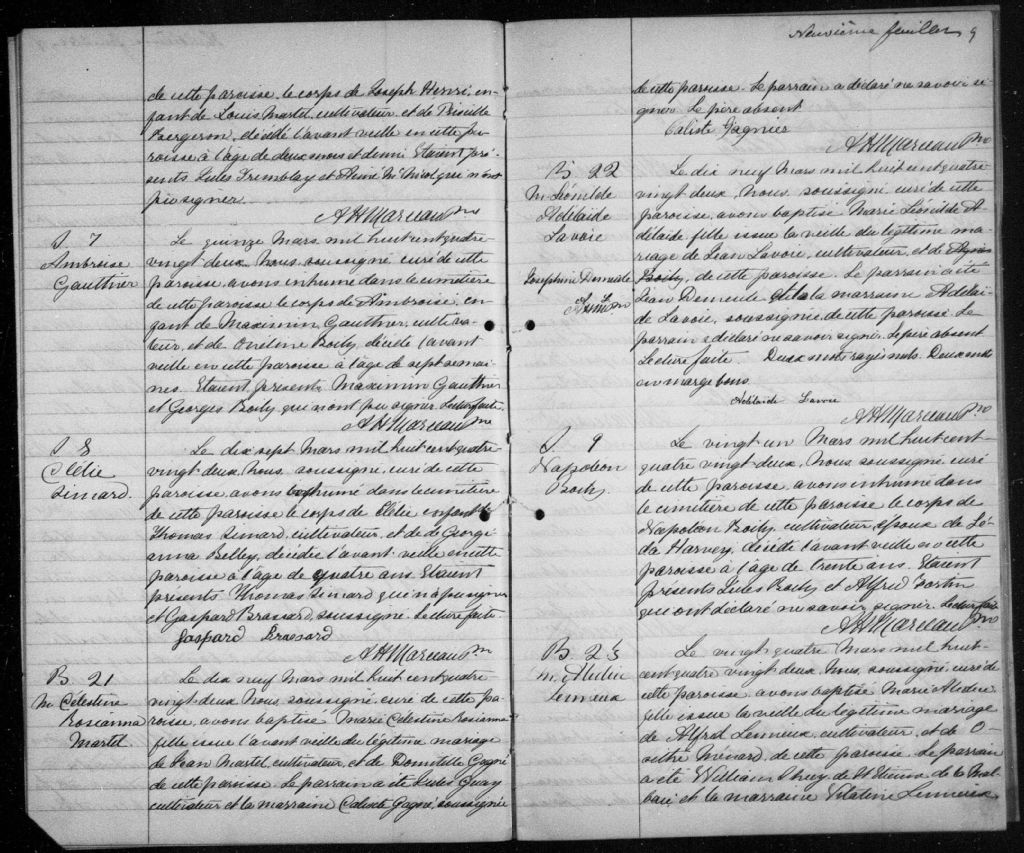 de cette paroisse, le corps de Joseph Henri, en-
fant de Louis Martel, cultivateur, et de Priscille
Bergeron, décédé l'avant veille en cette pa-
roisse, à l'âge de deux mois et demi. Etaient pré-
sents Jules Tremblay et qui n'ont
pu signer.
A H Marceau Ptre
S. 7
Ambroise
Gauthier
Le quinze Mars mil huit cent quatre-
vingt deux, Nous, soussigné, curé de cette
paroisse, avons inhumé dans le cimetière
de cette paroisse le corps de Ambroise, en-
fant de Maximin Gauthier, cultiva-
teur, et de Boily, décédé l'avant
veille en cette paroisse à l'âge de sept semai-
nes. Etaient présents Maximin Gauthier
et Georges Boily qui n'ont pu signer. Lecture faite.
A H Marceau Ptre
S. 8
Clélie
Simard.
Le dix sept Mars mil huit cent quatre
vingt deux, Nous, soussigné, curé de cette
paroisse, avons inhumé dans le cimetière
de cette paroisse le corps de Clélie enfant de
Thomas Simard, cultivateur, et de Georgi-
anna Belley, décédée l'avant veille en cette
paroisse à l'âge de quatre ans. Etaient
présents Thomas Simard qui n'a pu signer
et Gaspard Brassard, soussigné. Lecture faite
Gaspard Brassard
A H Marceau Ptre
B. 21
M. Célestine
Roseanna
Martel.
Le dix neuf Mars mil huit cent quatre-
vingt-deux, Nous, soussigné, curé de cette pa-
roisse, avons baptisé Marie Célestine Roseanna
fille issue l'avant veille du légitime mariage
de Jean Martel, cultivateur, et de Domitille Gagné
de cette paroisse. Le parrain a été Jules Guay
cultivateur et la marraine Caliste Gagné, soussignée
Neuvième feuillet 9
de cette paroisse. Le parrain a déclaré ne savoir si-
gner. Le père absent
Caliste Gagnier
A H Marceau Ptre
B 22
M. Léonilde
Adélaide
Lavoie
Joséphine Demeule
A H M. Ptre
Le dix neuf Mars mil huit cent quatre
vingt deux, Nous, soussigné, curé de cette
paroisse, avons baptisé Marie Léonilde A-
délaide fille issue la veille du légitime ma-
riage de Jean Lavoie, cultivateur, et de
Boily, de cette paroisse. Le parrain a été
Jean Demeule et la marraine Adélai-
de Lavoie, soussignée de cette paroisse. Le
parrain a déclaré ne savoir signer. Le père absent
Lecture faite. Deux mots rayés nuls. Deux mots
en marge bons.
Adélaide Lavoie
A H Marceau Ptre
S. 9
Napoléon
Boily.
Le vingt un Mars mil huit cent-
quatre vingt deux, Nous, soussigné, curé
de cette paroisse, avons inhumé dans
le cimetière de cette paroisse le corps de
Napoléon Boily, cultivateur, époux de Lé-
da Harvey, décédé l'avant veille en cette
paroisse à l'âge de trente ans. Etaient
présents Jules Boily et Alfred Fortin
qui ont déclaré ne savoir signer. Lecture faite
A H Marceau Ptre
B. 23
M.
Lemieux
Le vingt quatre Mars mil huit-
cent quatre vingt deux, Nous, soussigné, curé de
cette paroisse, avons baptisé Marie
fille issue la veille du légitime mariage
de Alfred Lemieux, cultivateur, et de O-
Ménard, de cette paroisse. Le parrain
a été William de St Etienne de la Mal-
baie et la marraine Lemieux